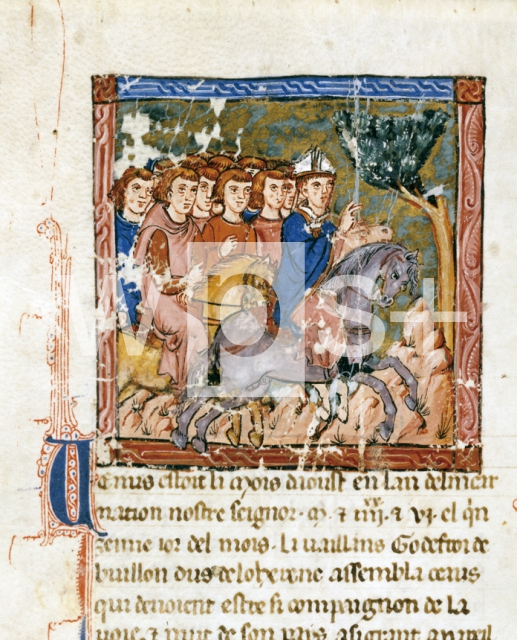 Venus estoit li mois dioust en lan delincar
nation nostre seignor. m. 7 iiij.xx 7 vj. el qin
zenme ior del mois. li vaillans Godefroi de
buillon dus de loherene assembla ceaus
qui devoient estre si compaignon de la
voie. 7 mut de son pais a si grant appareil
wps+